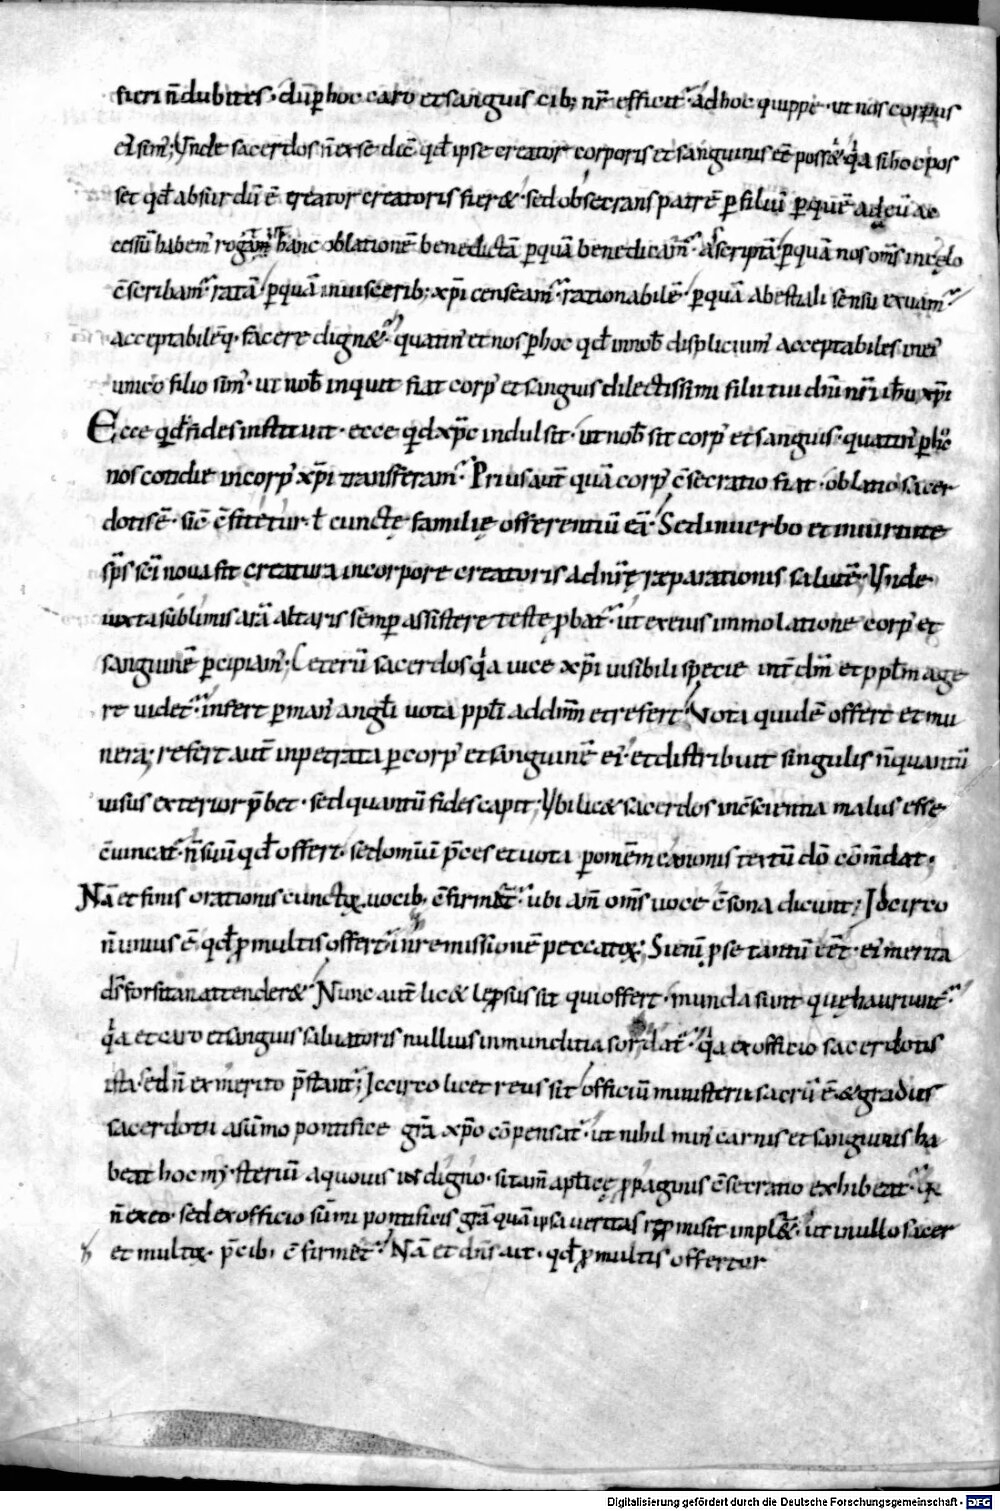 fieri n̄ dubites · dū ꝑ hoc caro et sanguis cib; nr̄ efficit᷑ · ad hoc quippe · ut nos corpus
ei᷒ sim᷒; Vnde sacerdos n̄ ex se dic̄ qd̄ ipse creator corporis et sanguinis ēē poss& · q̇a si hoc pos
set qd̄ absurdū ē creator creatoris fier& · sed obsecrans patrē ꝑ filiū ꝑ quē ad eū ac
cessū habem᷒ rogam᷒ hanc oblationē benedictā ꝑ quā benedicam᷑ · ascriptā ꝑ quā nos om̄s in cęlo
c̄scribam᷑ · ratā ꝑ quā in uiscerib; xp̄i censeam᷑ · rationabilē · ꝑ quā a bestiali sensu exuam᷑
acceptabilēq· facere dignet᷑ · quatin᷒ et nos ꝑ hoc qd̄ in nob̄ displicuim᷒ acceptabiles in ei᷒
unico filio sim᷒ · ut nob̄ inquit fiat corp᷒ et sanguis dilectissimi filii tui dn̄i nr̄i ih̄u xp̄i
Ecce qd̄ fides instituit · ecce qd xp̄c indulsit · ut nob̄ sit corp᷒ et sanguis · quatin᷒ ꝑ hoc
nos cotidie in corp᷒ xp̄i transferam᷑ · Prius aut̄ quā corp᷒ c̄secratio fiat · oblatio sacer
dotis ē · sic̄ c̄fitetur · ł cunctę familię offerentiū eā · Sed in uerbo et in uirtute
sp̄s sc̄i noua fit creatura in corpore creatoris ad nr̄ę reparationis salutē · Vnde
iuxta sublimis arā altaris semꝑ assistere teste ꝓbat᷑ · ut ex eius immolatione corp᷒ et
sanguinē ꝑcipiam᷒; Ceterū sacerdos q̇a uice xp̄i uisibili specie int̄ dm̄ et ppl̄m age
re uidet᷑ · infert ꝑ man᷒ angl̄i uota ppl̄i ad dm̄ et refert · Vota quidē offert et mu
nera; refert aut̄ inpetrata ꝑ corp᷒ et sanguinē ei᷒ · et distribuit singulis n̄ quantū
uisus exterior p̄bet · sed quantū fides capit; Vbi lic& sacerdos in c̄scientia malus esse
c̄uincat᷑ · n̄ suū qd̄ offert · sed omiū p̄ces et uota ꝑ omēm canonis textū dō cōm̄dat ·
Nā et finis orationis cunctoꝝ uocib; c̄firmat᷑ · ubi am̄ om̄s uoce c̄sona dicunt; Idcirco
n̄ unius ē · qd̄ ꝓ multis offert᷑ in remissionē peccatoꝝ; Si eni ꝓ se tantū ēēt · ei᷒ merita
ds̄ forsitan attender& · Nunc aut̄ lic& lepsus sit qui offert · munda sunt quę hauriunt᷑ ·
q̇a et caro et sanguis saluatoris nullius inmunditia sordat᷑ · q̇a ex officio sacerdotis
ista · sed n̄ ex merito p̄stant᷑; Iccirco licet reus sit officiū ministerii sacrū ē & gradus
sacerdotii a sūmo pontifice gr̄a xp̄o cōpensat᷑ · ut nihil min᷒ carnis et sanguinis ha
beat hoc mysteriū a quouis indigno · si tam̄ apticę ꝓpaginis c̄secratio exhibeat᷑ · q̇a
n̄ ex eo · sed ex officio sūmi pontificis gr̄a quā ipsa ueritas repmisit impl& · ut in ullo sacer
et multoꝝ · p̄cib; c̄firmet᷑ · Nā et dn̄s ait · qd̄ ꝓ multis offertur
Digitalisierung gefördert durch die Deutsche Forschungsgemeinschaft - DFG